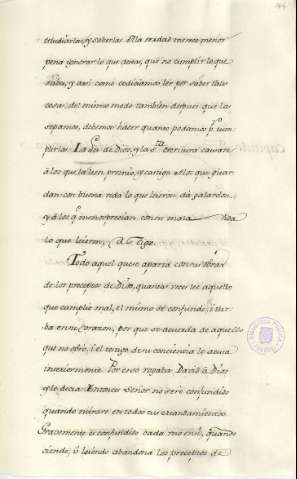 estudiarlas, y saberlas. A la verdad merece menor
pena ignorar lo que deves, que no cumplir lo que
sabes, y asi como codiciamos leer por saber tales
cosas, del mismo modo tambien despues que las
sepamos, debemos hacer quanto podamos pr. cum-
plirlas. La ley de Dios, y la Sta. escritura causan
á los que la leen, premio, y castigo. A los que guar-
dan con buena vida lo que leieron da galardon
y á los q. menosprecian con mala vida
lo que leieron, Castigo.
Todo aquel que se aparta con sus obras
de los preceptos de Dios, quantas veces lee aquello
que cumplio mal, el mismo se confunde, i tur-
ba en su Corazon, por que se acuerda de aquello
que no obró, i el testigo de su conciencia lo acusa
interiormente. Por esto rogaba David á Dios
y le decia: Entonces Señor no seré confundido
quando mirare en todos tus mandamientos.
Gravemente es confundido cada uno mui, quando
ciendo, ó leiendo abandona los preceptos de